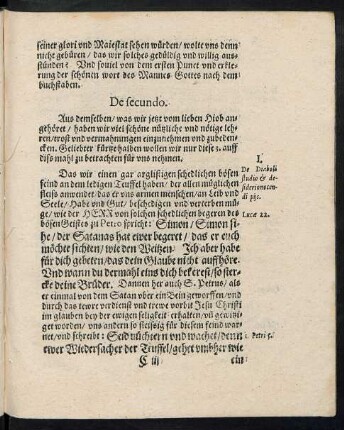 seiner glori vnd Maiestat sehen würden / wolte vns denn
nicht gebüren / das wir solches gedüldig vnd willig auß-
stünden? Vnd souiel von dem ersten Punct vnd erkle-
rung der schönen wort des Mannes Gottes nach dem
buchstaben.
De secundo.
Aus demselben / was wir jetzt vom lieben Hiob an-
gehöret / haben wir viel schöne nützliche vnd nötige leh-
ren / trost vnd vermahnungen einzunehmen vnd zubeden-
cken. Geliebter kürtze halben wollen wir nur diese 3. auff
diß mahl zu betrachten für vns nehmen.
I.
De Diaboli
studio &
nocen-
di &c.
Das wir einen gar arglistigen schedlichen bösen
feind an dem ledigen Teuffel haben / der allen möglichen
fleiss anwendet / das er vns armen menschen / an Leib vnd
Seele / Habe vnd Gut / beschedigen vnd verterben mü-
ge / wie der HERR von solchen schedlichen begeren des
bösen Geistes zu Petro spricht: Simon / Simon
Lucæ 22.
sihe / der Satanas hat ewer begeret / das er euch
möchte sichten / wie den Weitzen. Ich aber habe
für dich gebeten / das dein Glaube nicht auffhöre.
Vnd wann du dermahl eins dich bekerest / so ster-
cke deine Brüder. Dannen her auch S. Petrus / als
er einmal von dem Satan vber ein Bein geworffen / vnd
durch das tewre verdienst vnd trewe vorbit Jesu Christi
im glauben bey der ewigen seligkeit erhalten / vnd
worden / vns andern so fleissig für diesem feind war-
net / vnd schreibt: Seid nüchtern vnd wachet / denn
1. Petri 5.
ewer Widersacher der Teuffel / gehet vmbher wie
C iij
ein